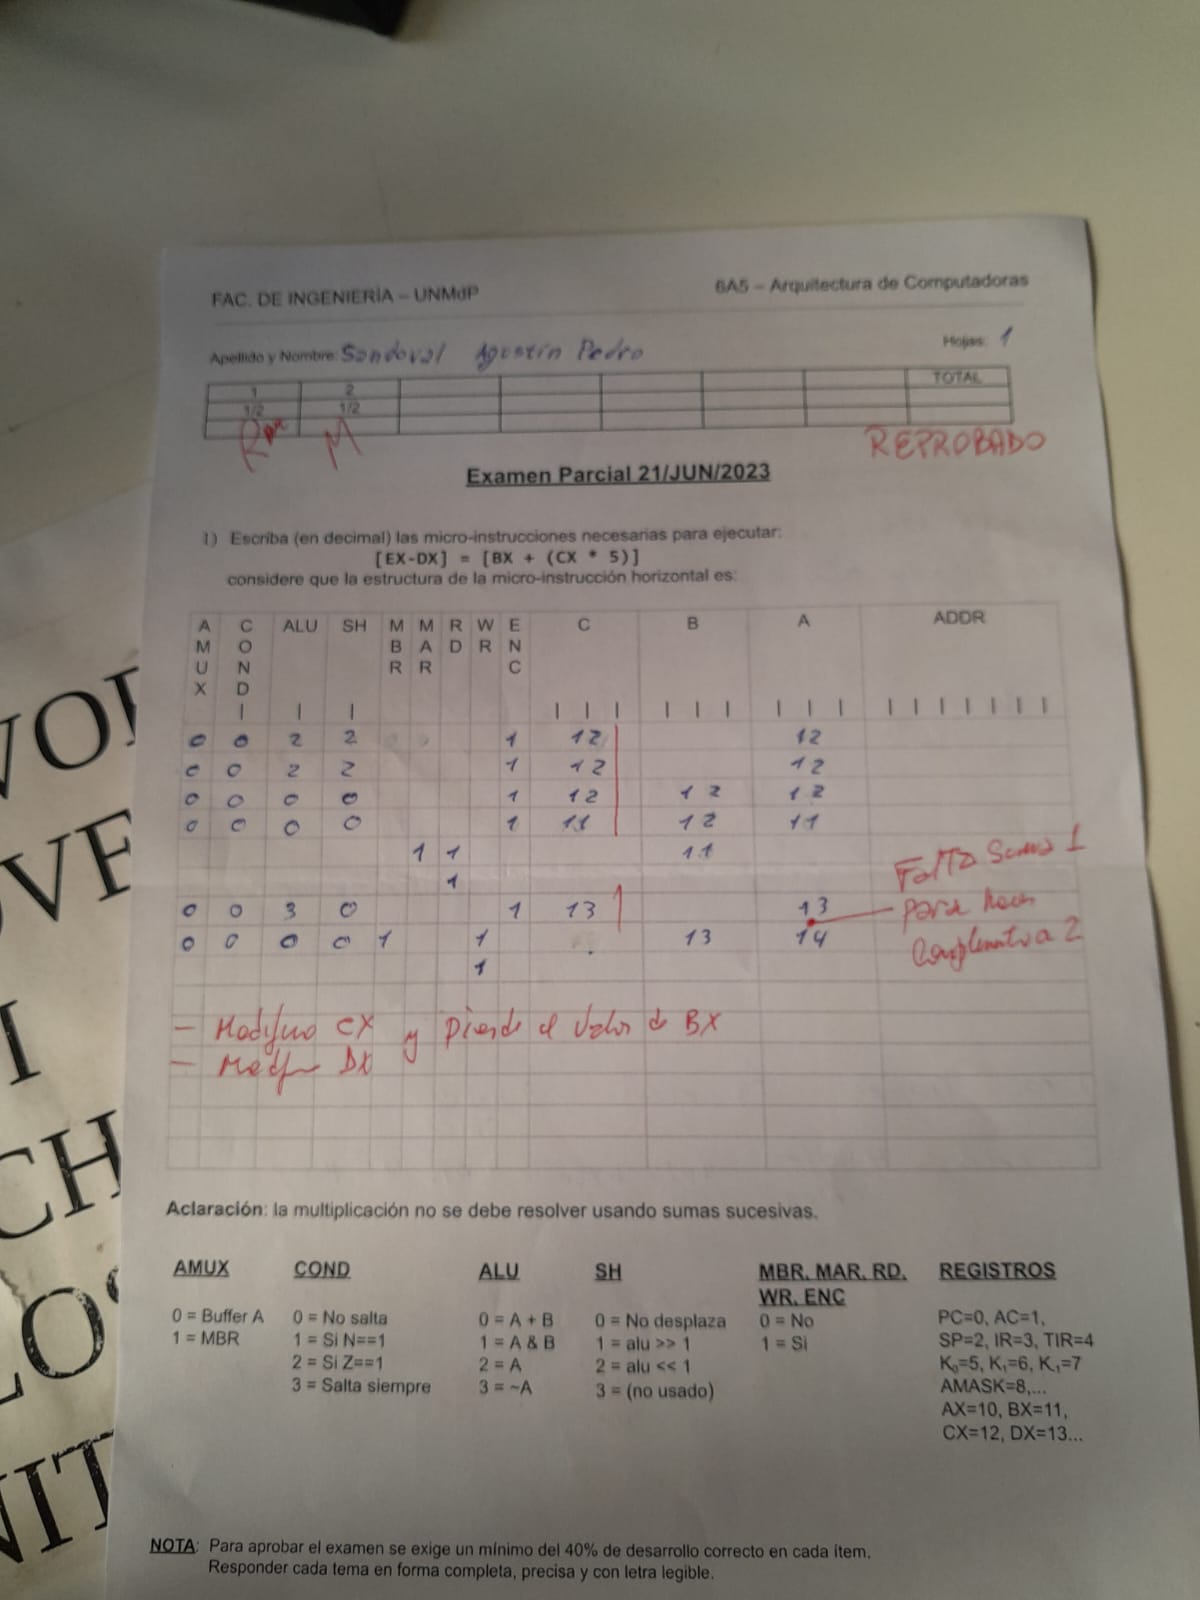 FAC. DE INGENIERÍA – UNMdP
6A5 – Arquitectura de Computadoras
Apellido y Nombre: Sandoval Agustín Pedro
Hojas: 1
1 2 TOTAL
1/2 1/2
M
REPROBADO
Examen Parcial 21/JUN/2023
1) Escriba (en decimal) las micro-instrucciones necesarias para ejecutar:
[EX-DX] = [BX + (CX * 5)]
considere que la estructura de la micro-instrucción horizontal es:
AMUX COND ALU SH MBR MAR RD WR ENC C B A ADDR
0 0 2 2 1 12 12
0 0 2 2 1 12 12
0 0 0 0 1 12 12 12
0 0 0 0 1 11 12 11
1 1 11
1
0 0 3 0 1 13 13
0 0 0 0 1 1 13 14
1
Falta Sumar 1
para hacer
Complemento a 2
– Modifico CX y Pierde el Valor de BX
– DX
Aclaración: la multiplicación no se debe resolver usando sumas sucesivas.
AMUX
0 = Buffer A
1 = MBR
COND
0 = No salta
1 = Si N==1
2 = Si Z==1
3 = Salta siempre
ALU
0 = A + B
1 = A & B
2 = A
3 = ~A
SH
0 = No desplaza
1 = alu >> 1
2 = alu << 1
3 = (no usado)
MBR, MAR, RD,
WR, ENC
0 = No
1 = Si
REGISTROS
PC=0, AC=1,
SP=2, IR=3, TIR=4
K₀=5, K₁=6, K₁=7
AMASK=8,...
AX=10, BX=11,
CX=12, DX=13...
NOTA: Para aprobar el examen se exige un mínimo del 40% de desarrollo correcto en cada ítem.
Responder cada tema en forma completa, precisa y con letra legible.